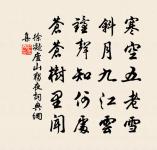 寒空五老雪
斜月九江雲
鐘聲知何處
蒼蒼樹里聞
徐凝廬山獨夜詞典網